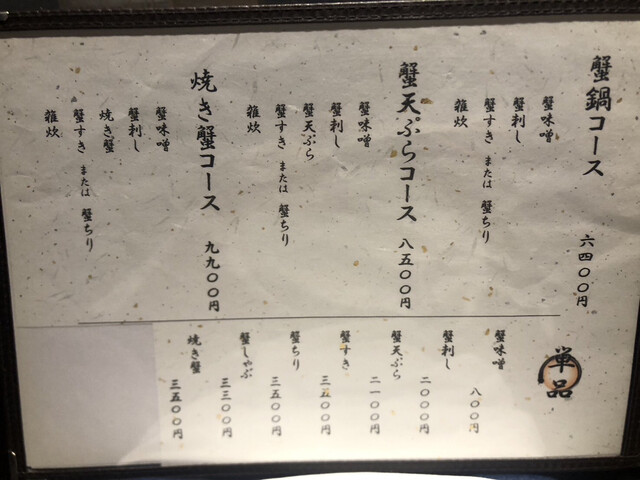 蟹鍋コース 六四〇〇円
蟹味噌
蟹刺し
蟹すき または 蟹ちり
雑炊
蟹天ぷらコース 八五〇〇円
蟹味噌
蟹刺し
蟹天ぷら
蟹すき または 蟹ちり
雑炊
焼き蟹コース 九九〇〇円
蟹味噌
蟹刺し
焼き蟹
蟹すき または 蟹ちり
雑炊
単品
蟹味噌 八〇〇円
蟹刺し 二〇〇〇円
蟹天ぷら 二一〇〇円
蟹すき 三五〇〇円
蟹ちり 三五〇〇円
蟹しゃぶ 三三〇〇円
焼き蟹 三五〇〇円